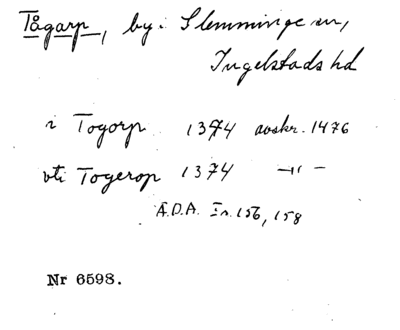 Tågarp, by i Slemminge sn,
Ingelstads hd
i Togorp 1374 avskr. 1476
vti Togerop 1374 –"–
Æ.D.A. I s. 156, 158
Nr 6598.